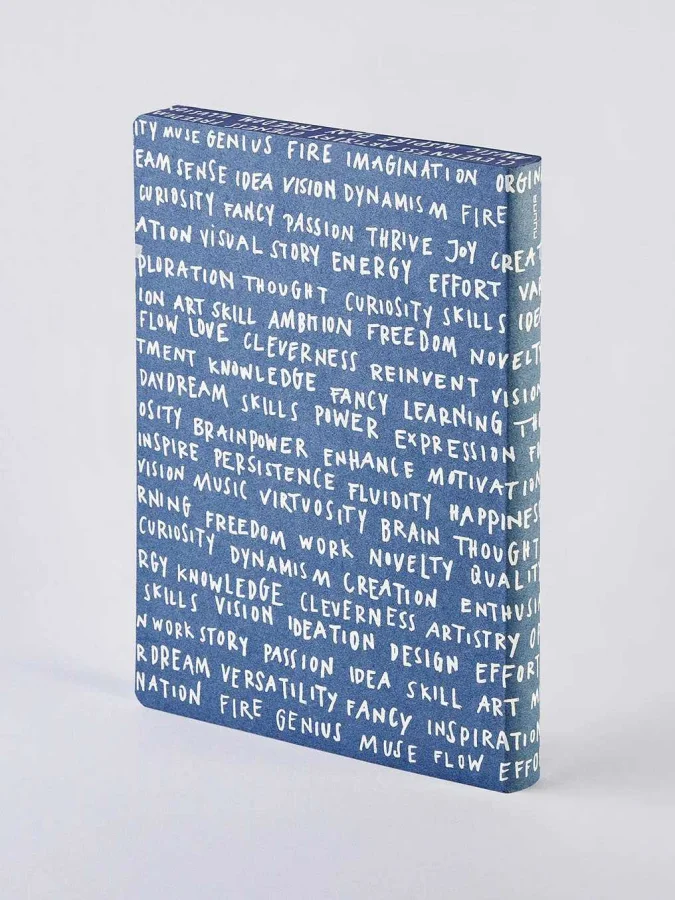 ITY MUSE GENIUS FIRE IMAGINATION ORGIN
EAM SENSE IDEA VISION DYNAMISM FIRE
CURIOSITY FANCY PASSION THRIVE JOY CREAT
ATION VISUAL STORY ENERGY EFFORT VAR
PLORATION THOUGHT CURIOSITY SKILLS IDE
ION ART SKILL AMBITION FREEDOM NOVELT
FLOW LOVE CLEVERNESS REINVENT VISION
TMENT KNOWLEDGE FANCY LEARNING TH
DAYDREAM SKILLS POWER EXPRESSION F
OSITY BRAINPOWER ENHANCE MOTIVATION
INSPIRE PERSISTENCE FLUIDITY HAPPINES
VISION MUSIC VIRTUOSITY BRAIN THOUGHT
RNING FREEDOM WORK NOVELTY QUALIT
CURIOSITY DYNAMISM CREATION ENTHUSI
RGY KNOWLEDGE CLEVERNESS ARTISTRY O
SKILLS VISION IDEATION DESIGN EFFORT
N WORK STORY PASSION IDEA SKILL ART M
R DREAM VERSATILITY FANCY INSPIRATION
NATION FIRE GENIUS MUSE FLOW EFFO
nuuna